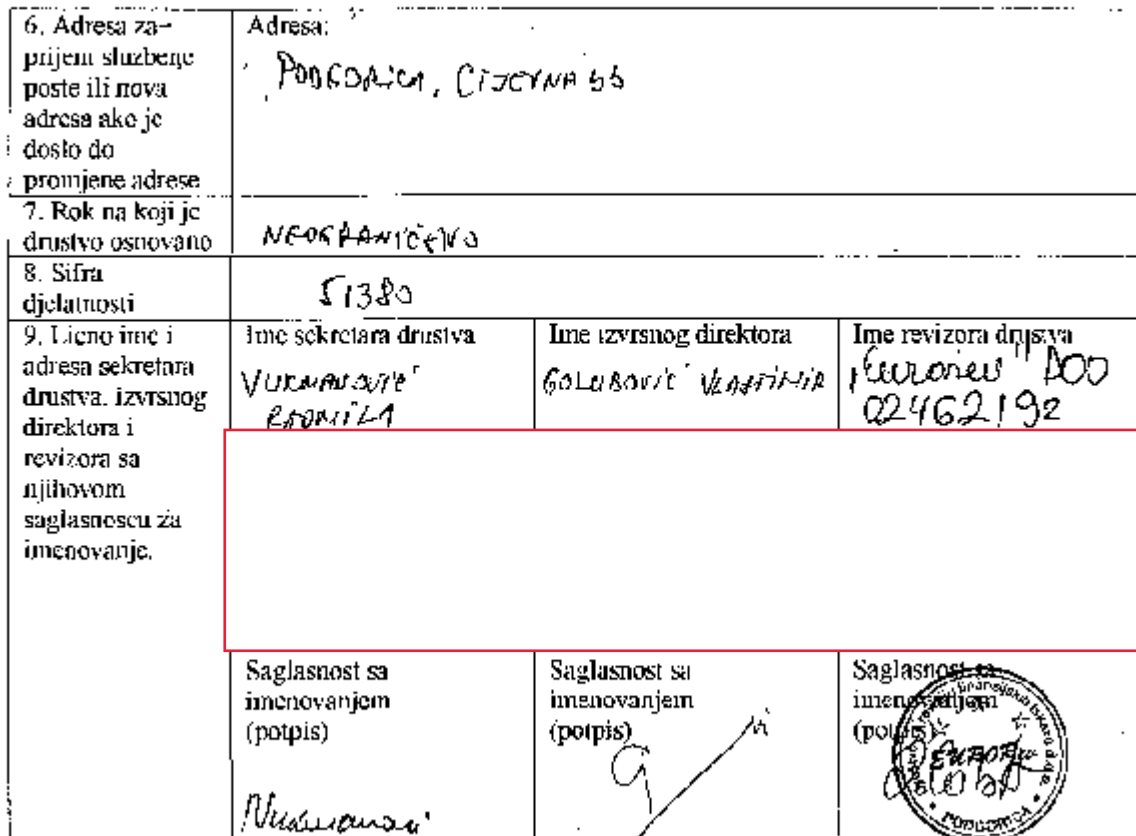 6. Adresa za-
prijem sluzbene
poste ili nova
adresa ako je
doslo do
promjene adrese
Adresa:
PODGORICA, CIJEVNA bb
7. Rok na koji je
drustvo osnovano
NEOGRANIČENO
8. Sifra
djelatnosti
51380
9. Licno ime i
adresa sekretara
drustva, izvrsnog
direktora i
revizora sa
njihovom
saglasnoscu za
imenovanje.
Ime sekretara drustva
VUKMANOVIĆ
RADMILA
Ime izvrsnog direktora
GOLUBOVIĆ VLASTIMIR
Ime revizora drustva
DOO
02462192
Saglasnost sa
imenovanjem
(potpis)
Saglasnost sa
imenovanjem
(potpis)
Saglasnost sa
imenovanjem
(potpis)
PODGORICA